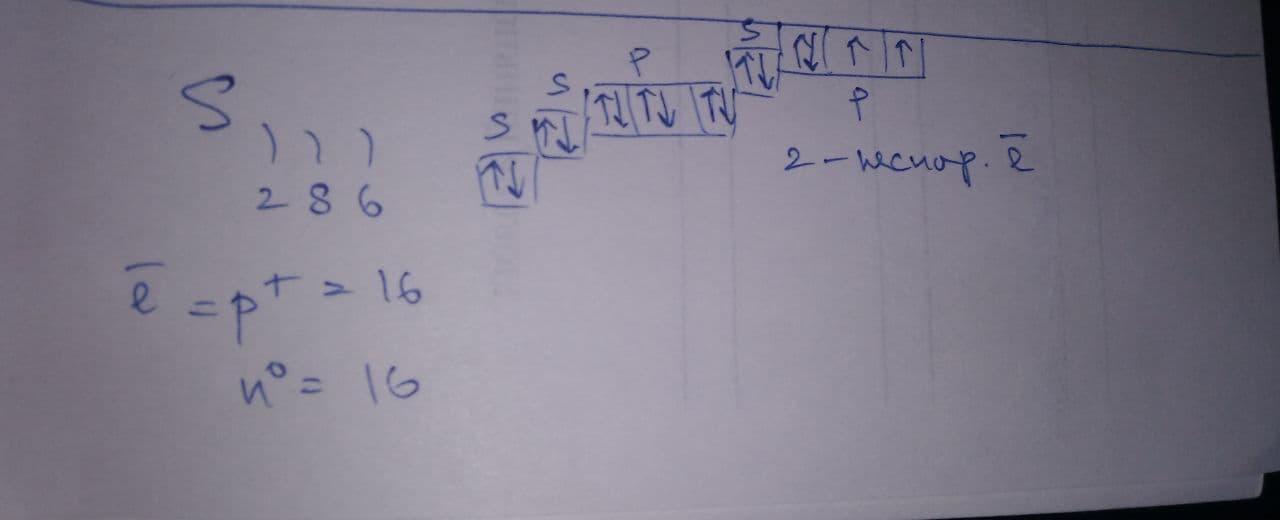 S
) ) )
2 8 6
ē = p⁺ = 16
n⁰ = 16
S S P S
↑↓ ↑↓ ↑↓ ↑↓ ↑↓ ↑↓ ↑↓ ↑ ↑
P
2 – неспар. ē